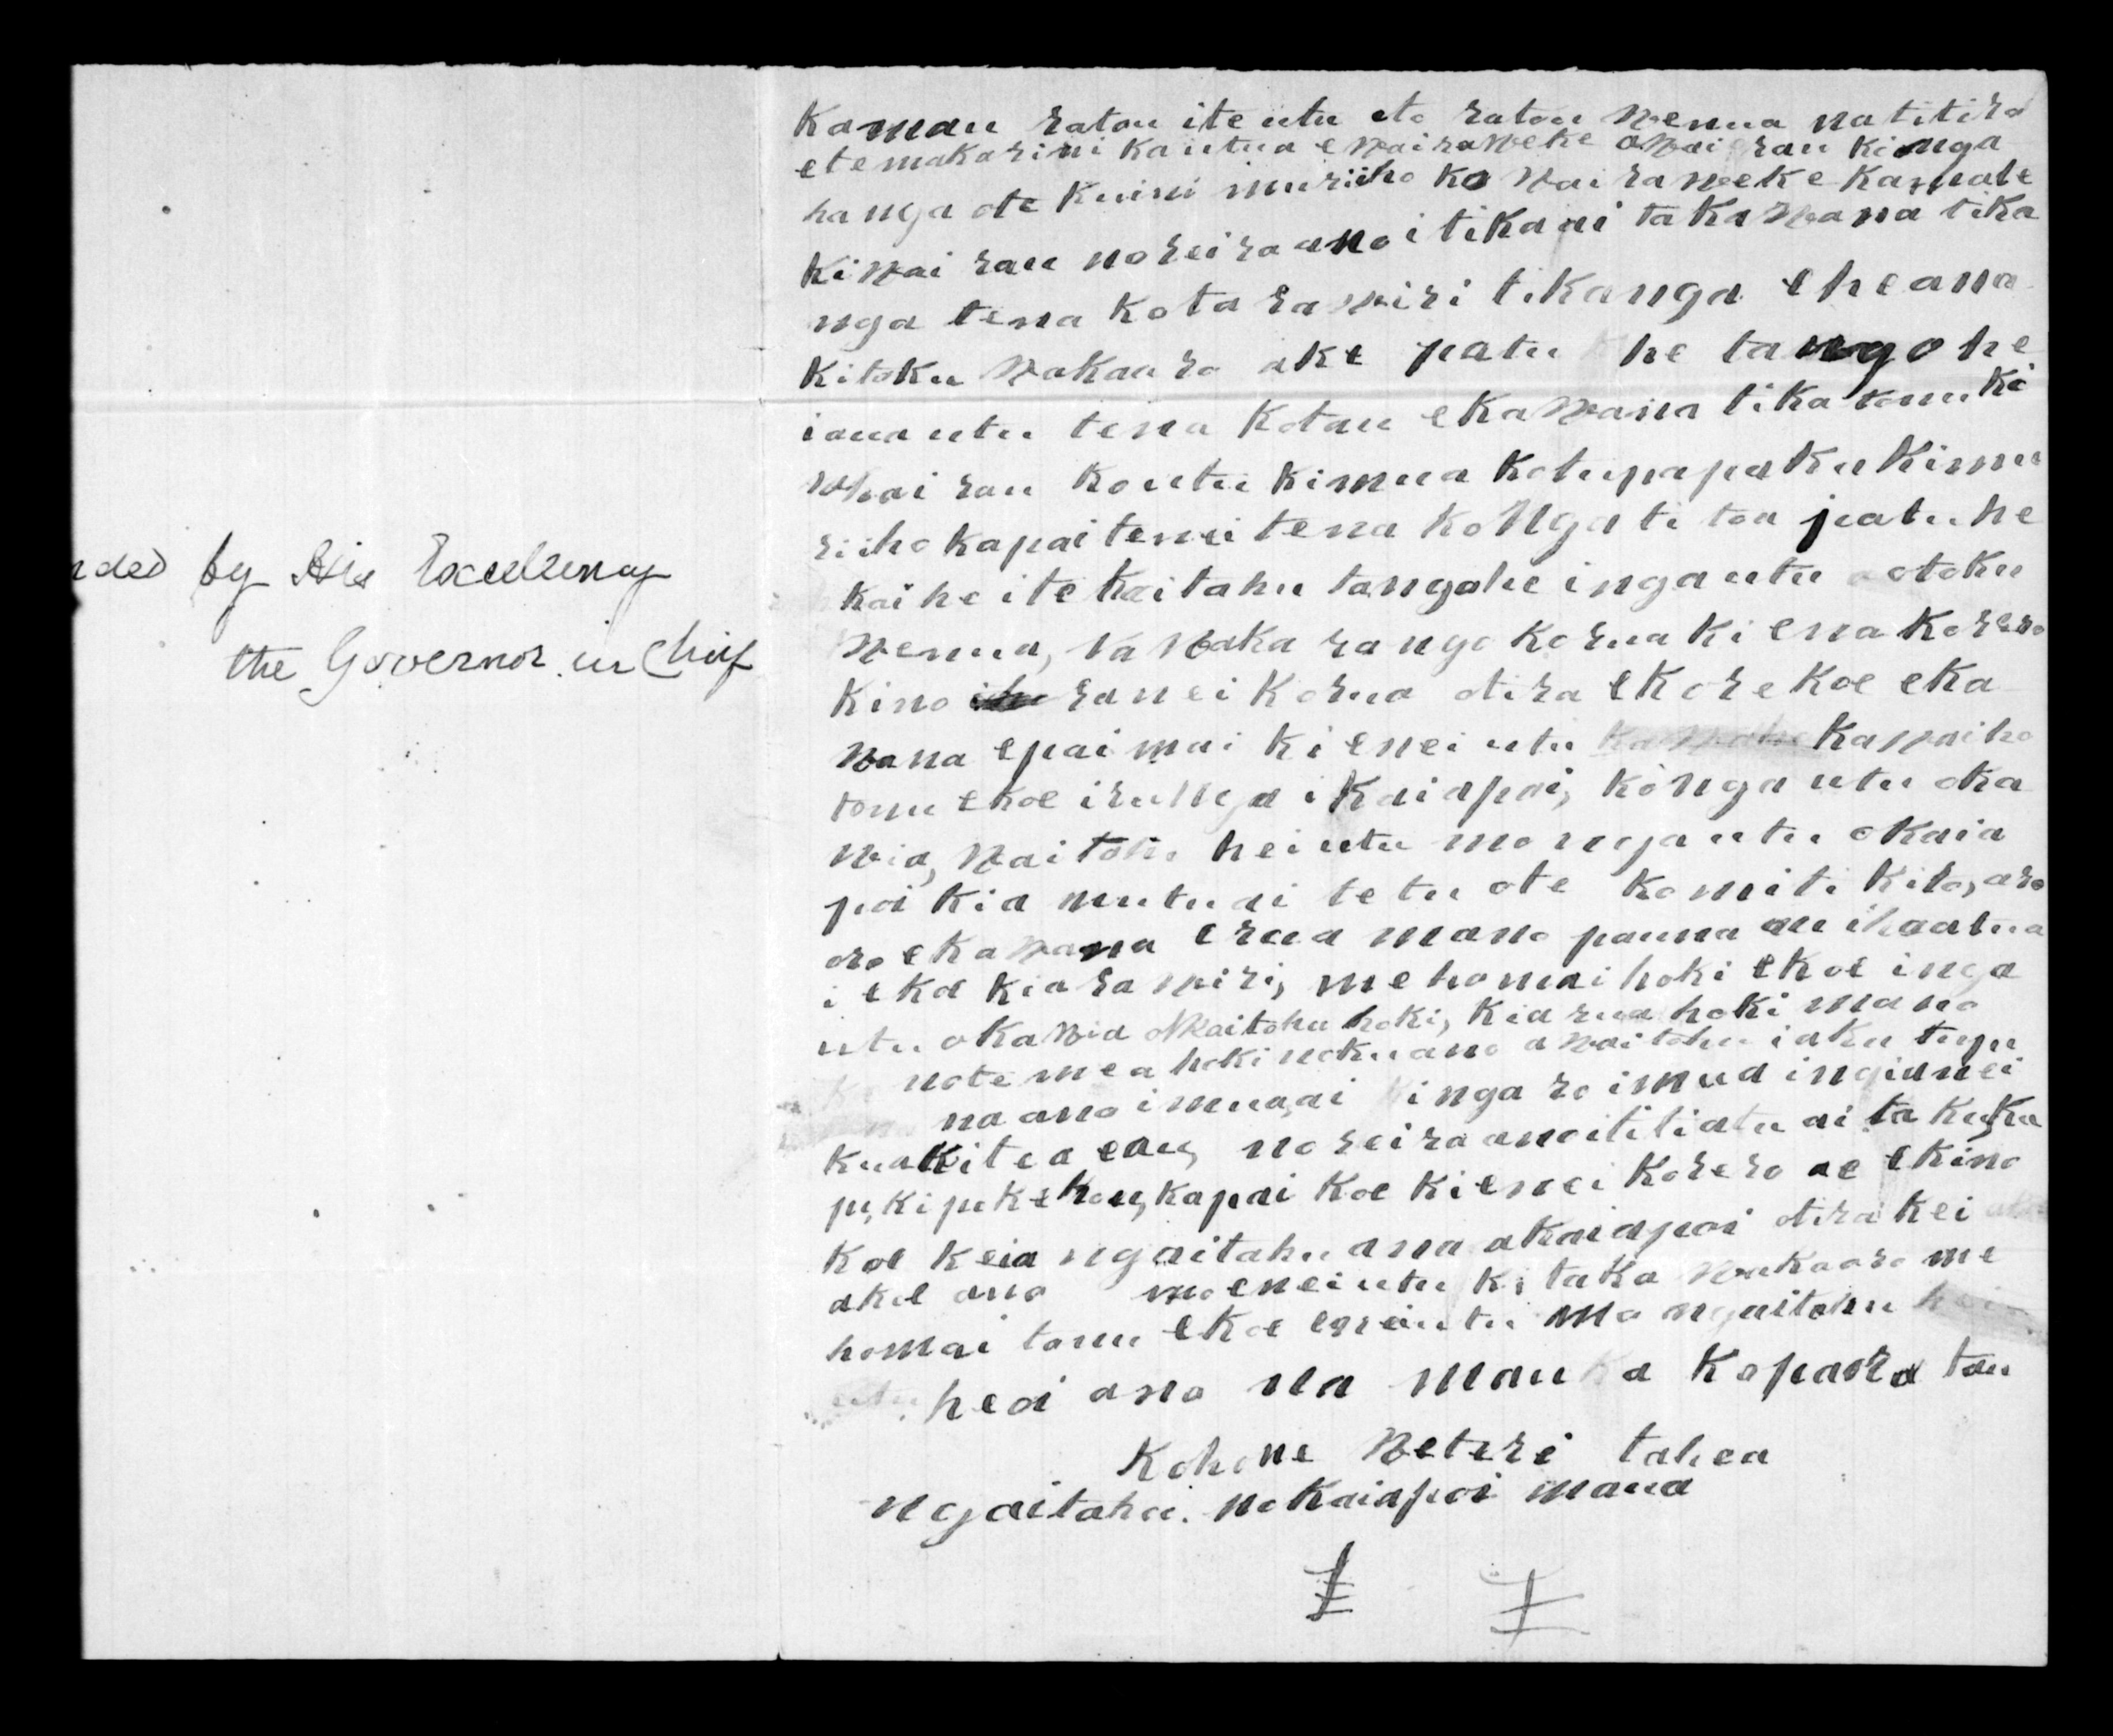 nded by His Excellency
the Governor in Chief
Kamau ratou ite utu oto ratou wenua natitiro
etemakarini kautua ewairaweke awairau kionga
hanga ote kuini muriiho ko wairaweke kamate
kiwai rau noreira ano i tika ai takawana tika
nga tena kota rawiri tikanga eheana
kitoku wakaaro ake patu he tango he
iaua utu tena kotau ekawana tika tonu ki
Whai rau ko utu kimua kotupapaku kimu
riiho kapai tenei tena ko Ngati toa patu he
kai he ite kaitahu tangohe inga utu otoku
wenua, ka waka rango korua ki ena korero
kino ra nei korua otira ekore koe eka
wana epai mai ki enei utu kawaiho
tonu ekoe irunga i Kaiapoi, konga utu oka
wia, waitohu hei utu mo nga utu okaia
poi kia mutu ai te tu ote komiti kito, aro
aro ekawana erua mano pauna au ikaatua
i ekoe kia rawiri, me homai hoki ekoe inga
utu okawia oWaitohu hoki, kia rua hoki mano
note mea hoki nokuano awaitohu iaku tupu
na ano imua, ai inga ra imua ingianei
kuakitea eau, no reira anoititiatu ai ta kupu
pukipuke hou, kapai koe kienei korero ae ekino
koe keia ngaitahu ana akaiapoi otira kei
akoe ano mo enei utu ki taku wakaaro me
homai tonu ekoe enei utu ma ngaitahu
heoi ano na mau a koparatau
Kohone Weteri tahea
ngaitahu. nokaiapoi maua